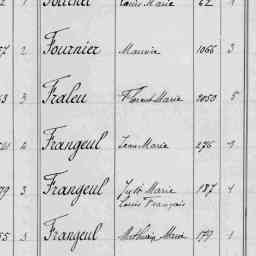 2 1 Louis Marie 62 1
2 Fournier Maurice 1066 3
3 3 Fraleu Florent Marie 3050 5
2 Frangeul Jean Marie 276
79 3 Frangeul Juste Marie 187 1
Louis François
55 3 Frangeul Mathurin Marie 179 1